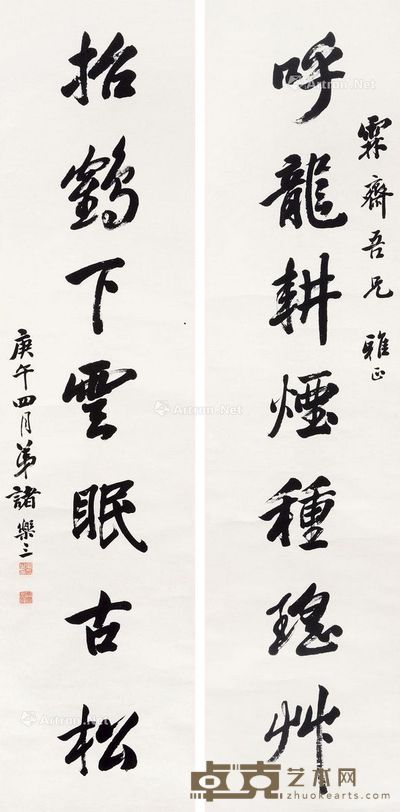 霖齋吾兄 雅正
呼龍耕煙種瑤艸
招鶴下雲眠古松
庚午四月弟諸樂三
Artron.Net
卓克艺术网
zhuokearts.com